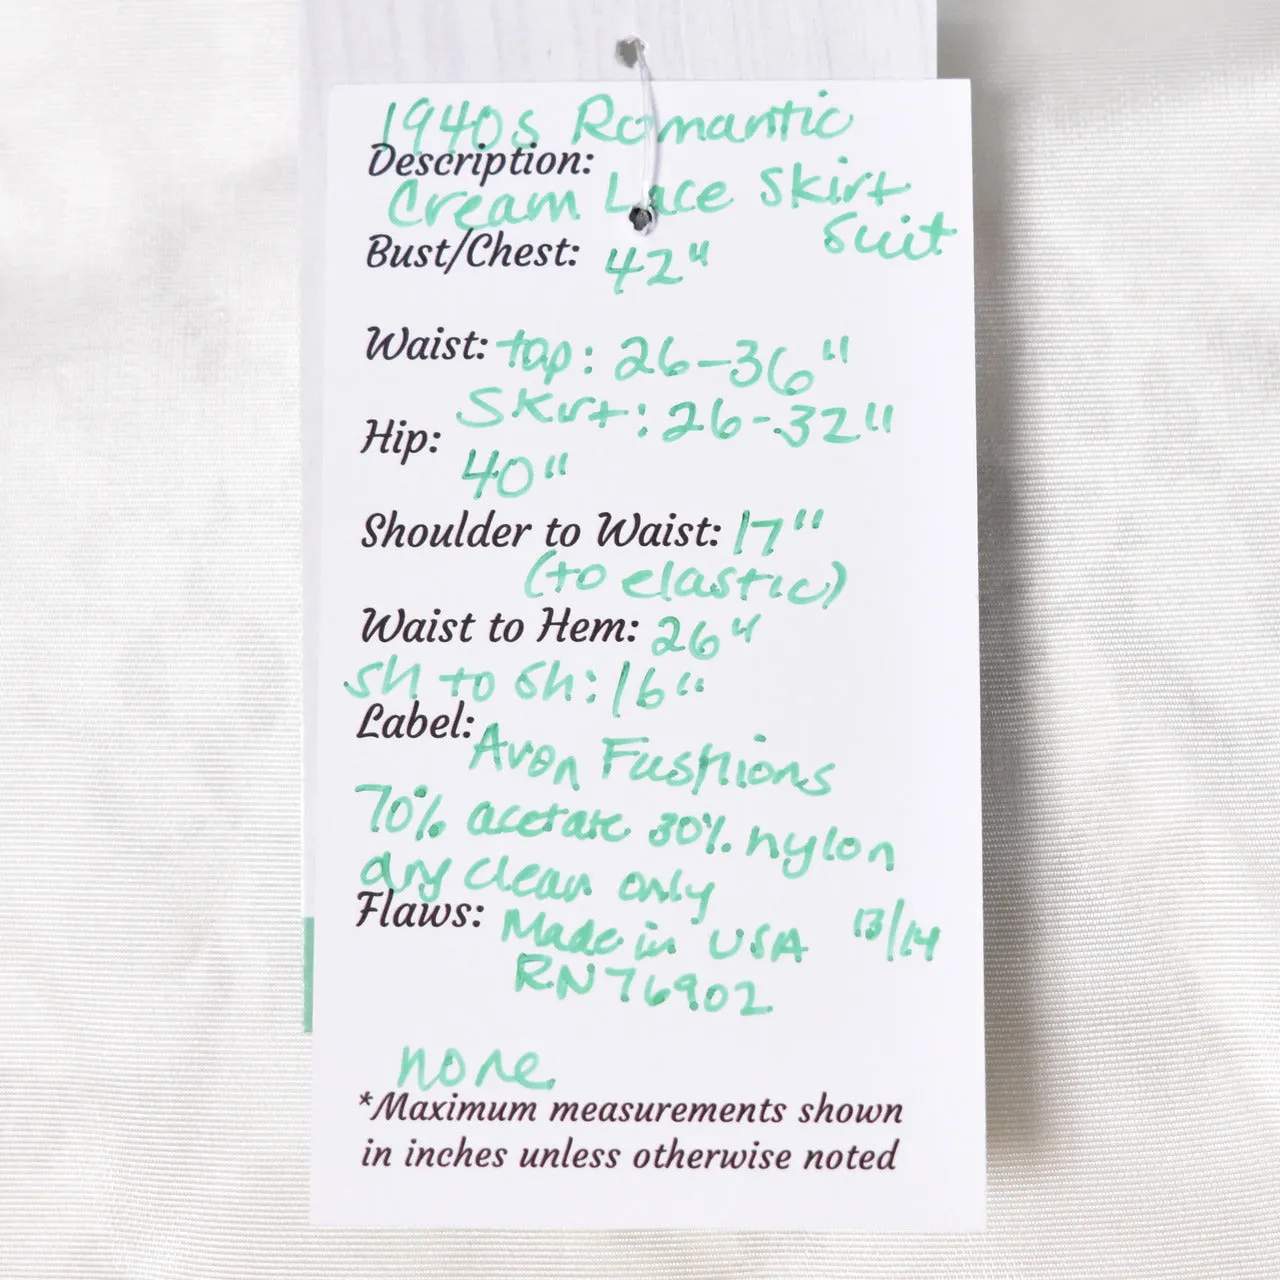 1940s Romantic
Description:
Cream Lace Skirt
Suit
Bust/Chest: 42"
Waist: top: 26-36"
Skirt: 26-32"
Hip:
40"
Shoulder to Waist: 17"
(to elastic)
Waist to Hem: 26"
Sh to Sh: 16"
Label:
Avon Fashions
70% acetate 30% nylon
dry clean only
Flaws:
Made in USA 13/14
RN76902
none
*Maximum measurements shown
in inches unless otherwise noted